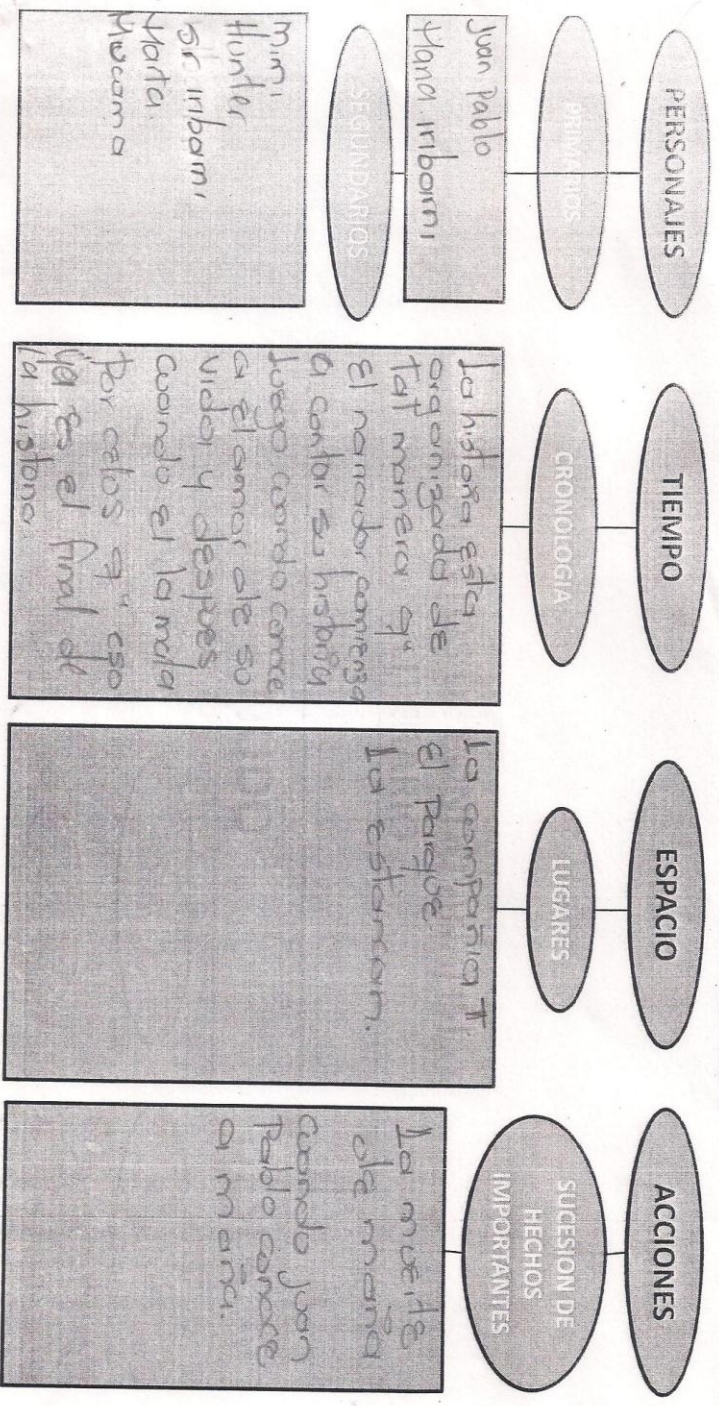 PERSONAJES
PRIMARIOS
Juan Pablo
Maria iribarni
SEGUNDARIOS
mimi
Hunter
sr iribarni
Marta
Mucama
TIEMPO
CRONOLOGIA
La historia esta
organizada de
tal manera q"
El narrador comienza
a contar su historia
luego cuando conoce
a el amor de su
vida y despues
cuando el la mata
por celos q" eso
ya es el final de
la historia
ESPACIO
LUGARES
La compañia T.
El Parque
La estancan.
ACCIONES
SUCESION DE
HECHOS
IMPORTANTES
La muerte
de maria
Cuando Juan
Pablo conoce
a maria.